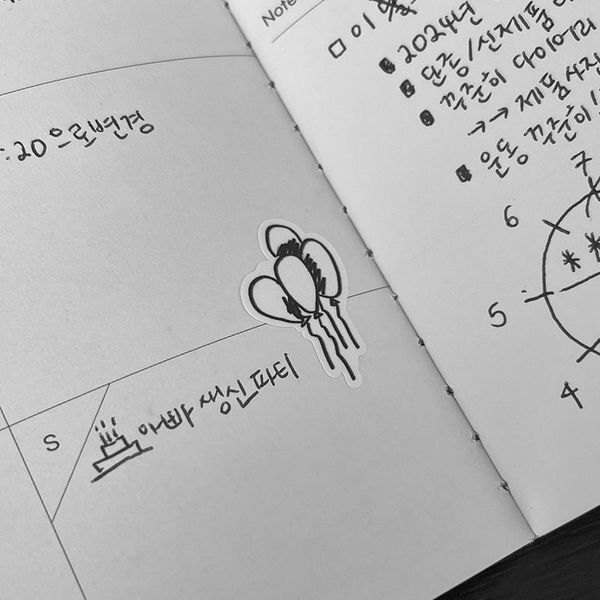 :20으로변경
S
아빠 생신파티
Note
2024년
단종/신제품
꾸준히 다이어리
→→ 제품사진
운동 꾸준히
7
6
5
4